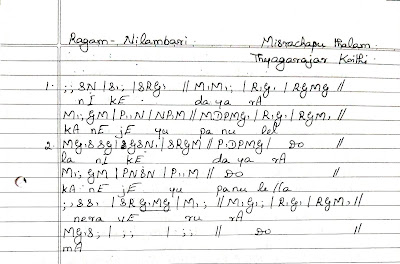 Ragam- Nilambari Misrachapu Thalam
Thyagarajar Krithi
1. ; ; SN | S ; | SRG ; || M ; M ; ; | R ; G ; | RGMG ||
nI kE da ya rA
M ; ; GM | P ; ; N | NPM || MDPMG ; | R ; G ; | RGM ; ||
kA nE jE yu pa nu lel
2. MG ; SSG | SGSN ; | SRGM || P ; DPMG | DO ||
la nI kE da ya rA
M ; ; GM | PNSN | P ; ; M || DO ||
kA nE jE yu panu le lla
; ; SS ; | SRG ; MG | M ; ; || M ; G ; ; | R ; G ; | RGM ; ||
nera vE ru rA
MG ; S ; | ; ; | ; ; || DO ||
mA